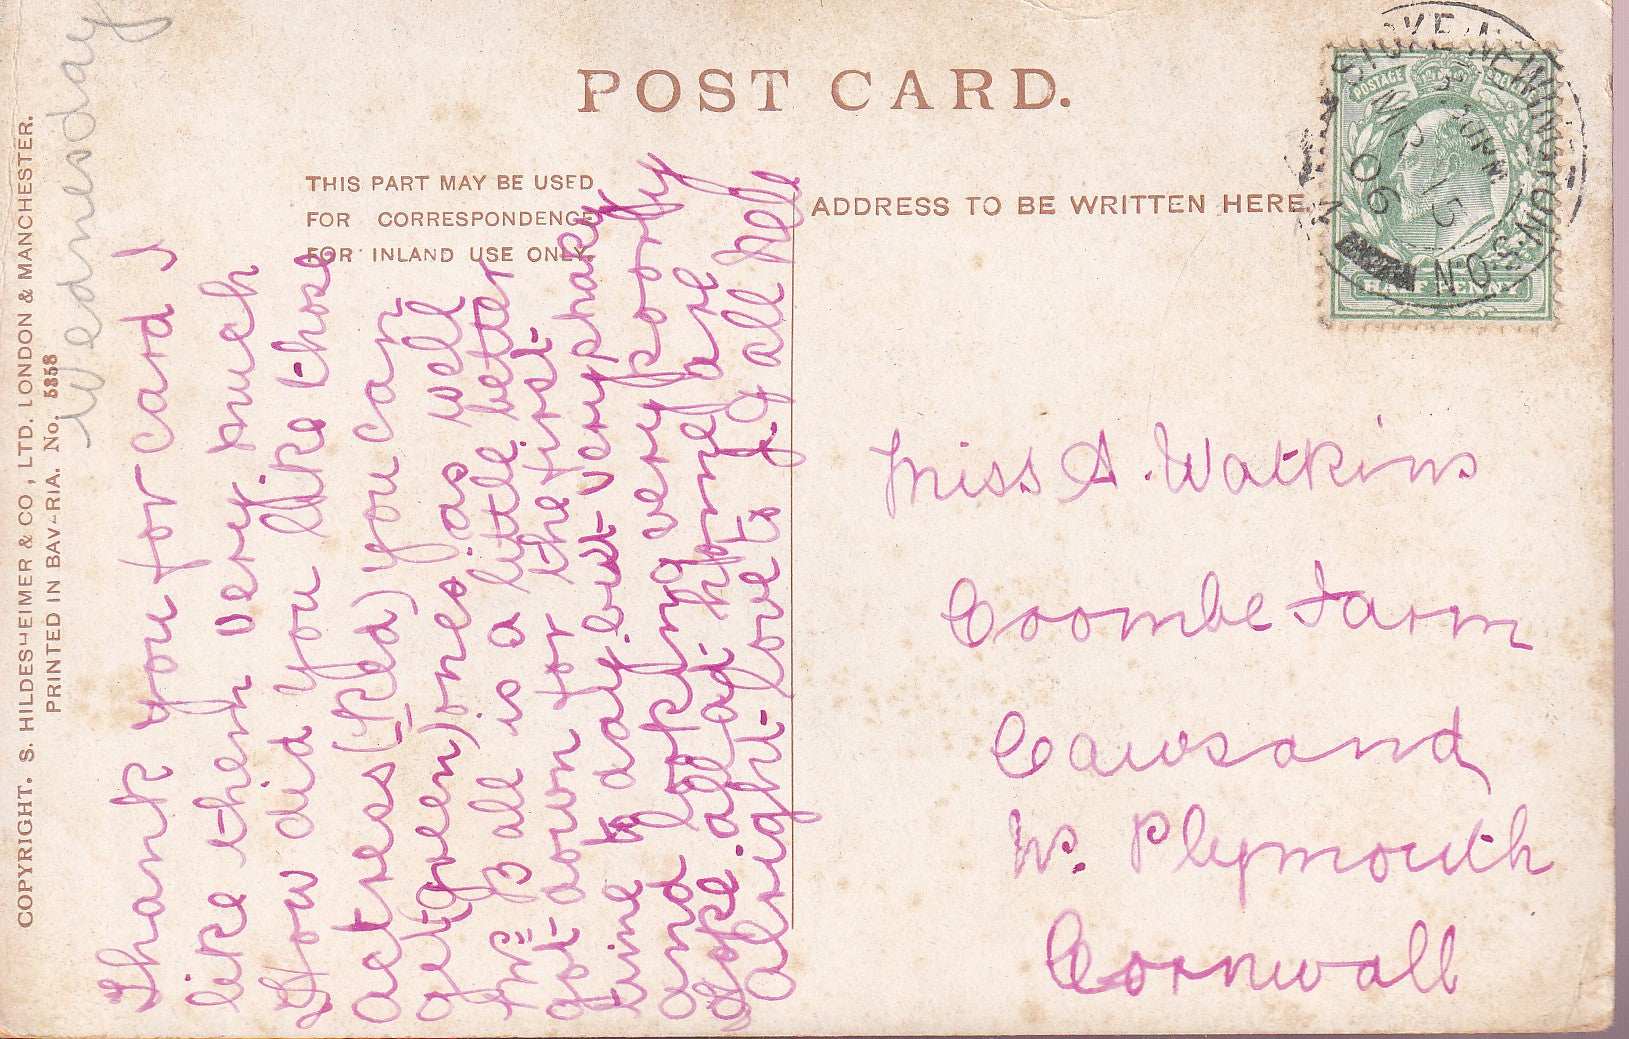 POST CARD.
THIS PART MAY BE USED
FOR CORRESPONDENCE
FOR INLAND USE ONLY.
ADDRESS TO BE WRITTEN HERE.
COPYRIGHT. S. HILDESHEIMER & CO, LTD. LONDON & MANCHESTER.
PRINTED IN BAVARIA. No. 5358
Wednesday
Thank you for card I
like them very much
How did you like those
actress (Red) you can
get (green) ones as well
Mr B all is a little better
got down for the first
time to day. but very shakey
and looking very poorly
Hope all ad home are
alright love to J G all Nell
Miss A. Watkins
Coombe Farm
Cawsand
Nr. Plymouth
Cornwall
STOKE NEWINGTON S.O.
N
MR 15
06
POSTAGE
HALF PENNY